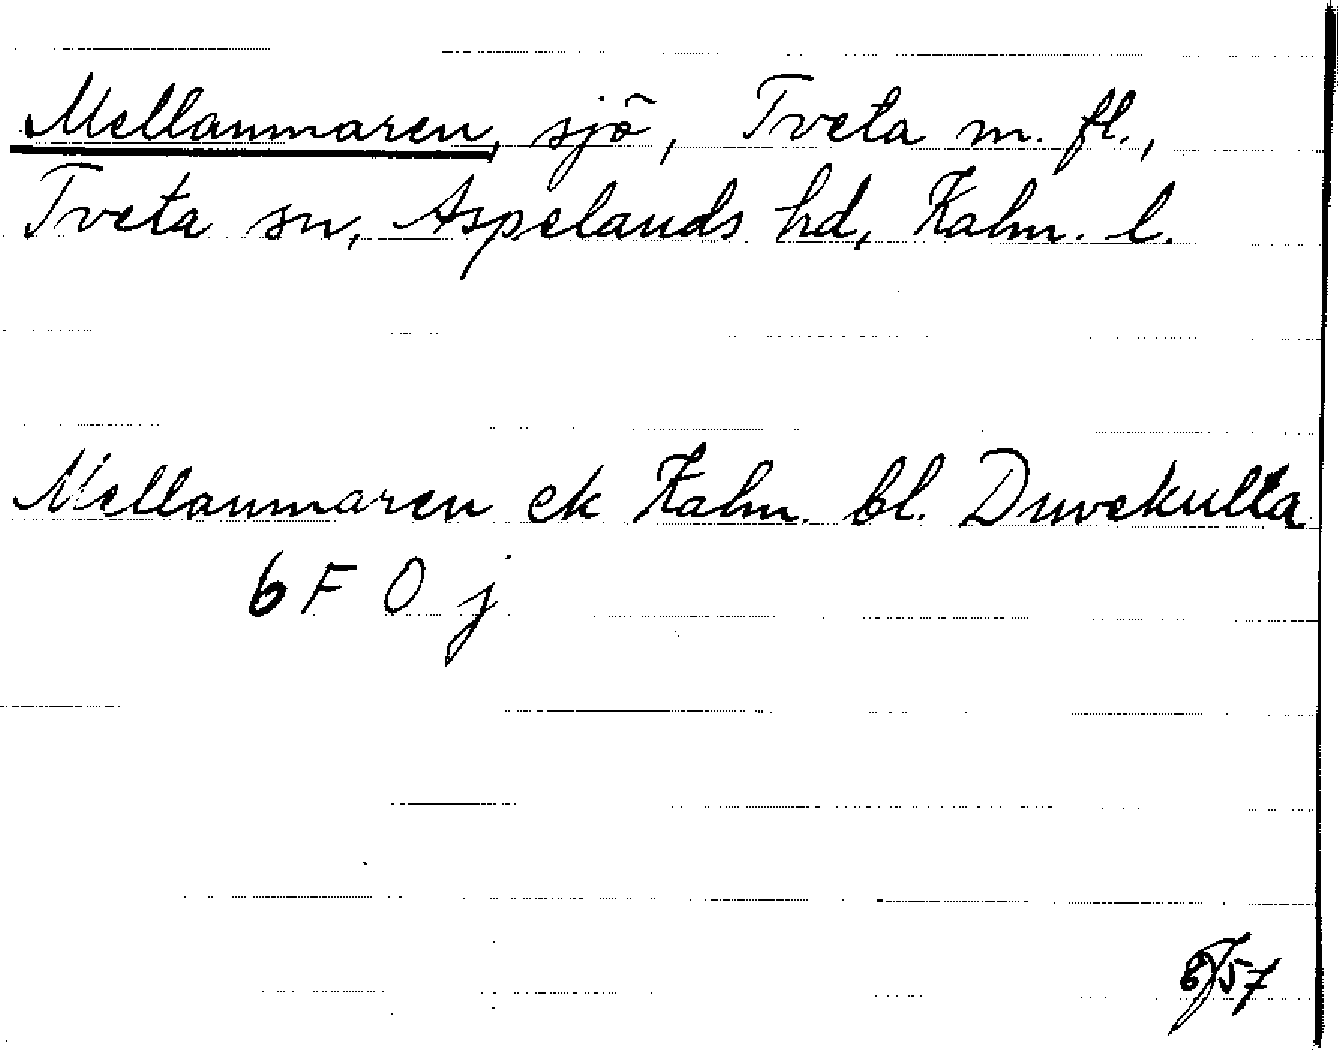 Mellanmaren, sjö, Tveta m. fl.,
Tveta sn, Aspelands hd, Kalm. l.
Mellanmaren ek Kalm. bl. Duvekulla
6 F 0 j
57